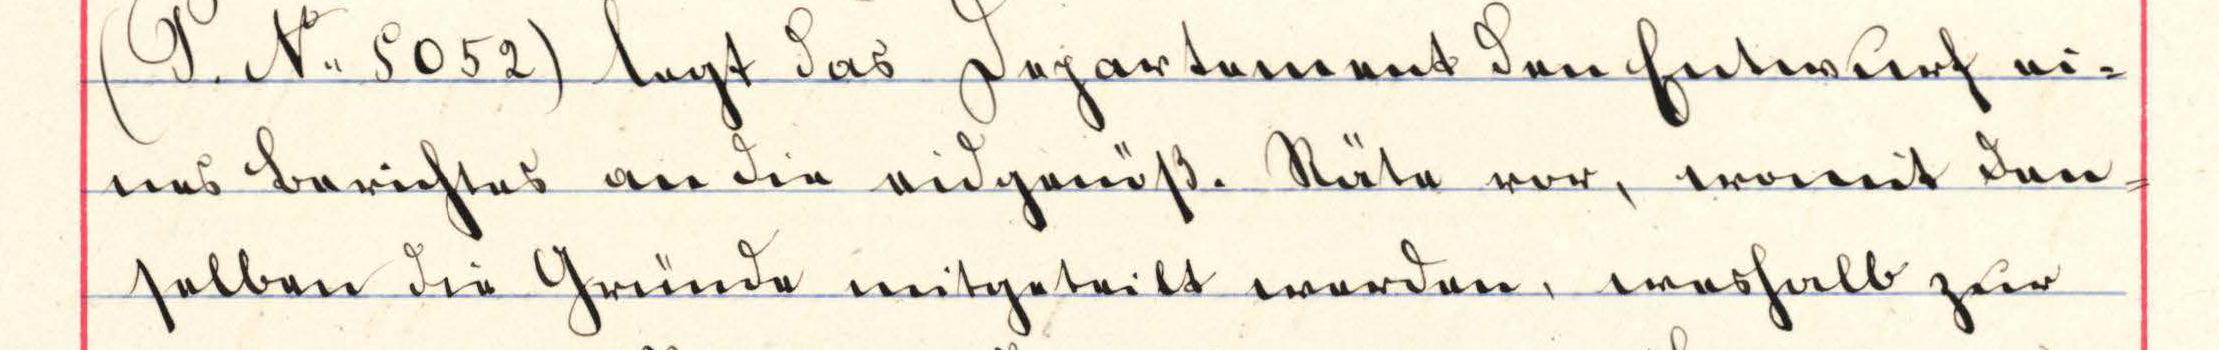 (P. No. 5052) legt das Departement den Entwurf ei-
nes Berichtes an die eidgenöß. Räte vor, womit den-
selben die Gründe mitgeteilt werden, weshalb zur